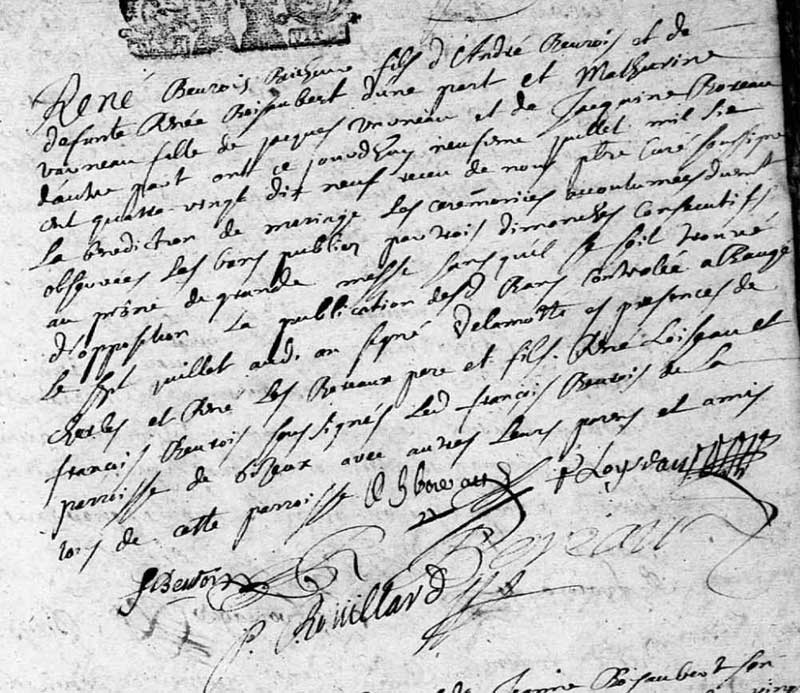 René Beurois fils d'André Beurois et de
defunte Renée Boisaubert d'une part et Mathurine
fille de Jacques et de Jacquine Boreau
d'autre part ont ce jourdhuy neufiême juillet mil sie
cent quatre vingt dix neuf receu de nous pbre Curé soussigné
La benediction de mariage Les ceremonies acoutumées dument
observées Les bans publiez par trois dimanches consecutifs
au prône de grande messe sans qu'il se soit trouvé
d'opposition La publication desd bans controlée a
Le sept juillet aud. an signé Delamotte es presences de
Charles et René Les Boreaux pere et fils. René Loiseau et
François Beurois soussignés Led françois Beurois de La
parroisse de avec autres Leurs parens et amis
tous de cette parroisse
C boreau R Loyseau
Boreau
f Beurois
P. Rouillard
de Jeanne Boisaubert son